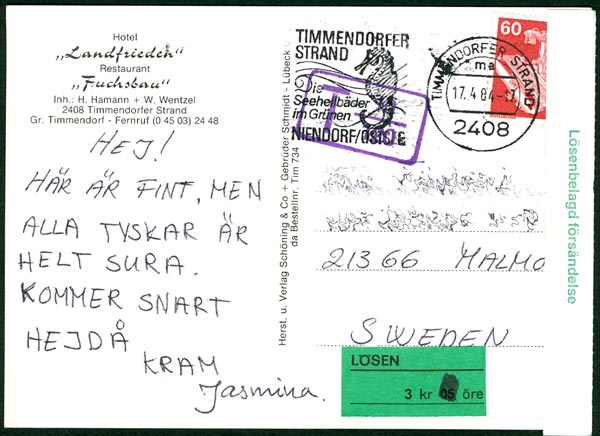 Hotel
„Landfrieden"
Restaurant
„Fuchsbau"
Inh.: H. Hamann + W. Wentzel
2408 Timmendorfer Strand
Gr. Timmendorf - Fernruf (0 45 03) 24 48
HEJ!
HÄR ÄR FINT, MEN
ALLA TYSKAR ÄR
HELT SURA.
KOMMER SNART
HEJDÅ
KRAM
Jasmina.
Herst. u. Verlag Schöning & Co + Gebrüder Schmidt - Lübeck
da Bestellnr. Tim 734
TIMMENDORFER
STRAND
Die
Seeheilbäder
im Grünen
NIENDORF/OSTSEE
T
TIMMENDORFER STRAND
ma
17.4.84-17
2408
60
21366 MALMO
SWEDEN
LÖSEN
3 kr 05 öre
Lösenbelagd försändelse